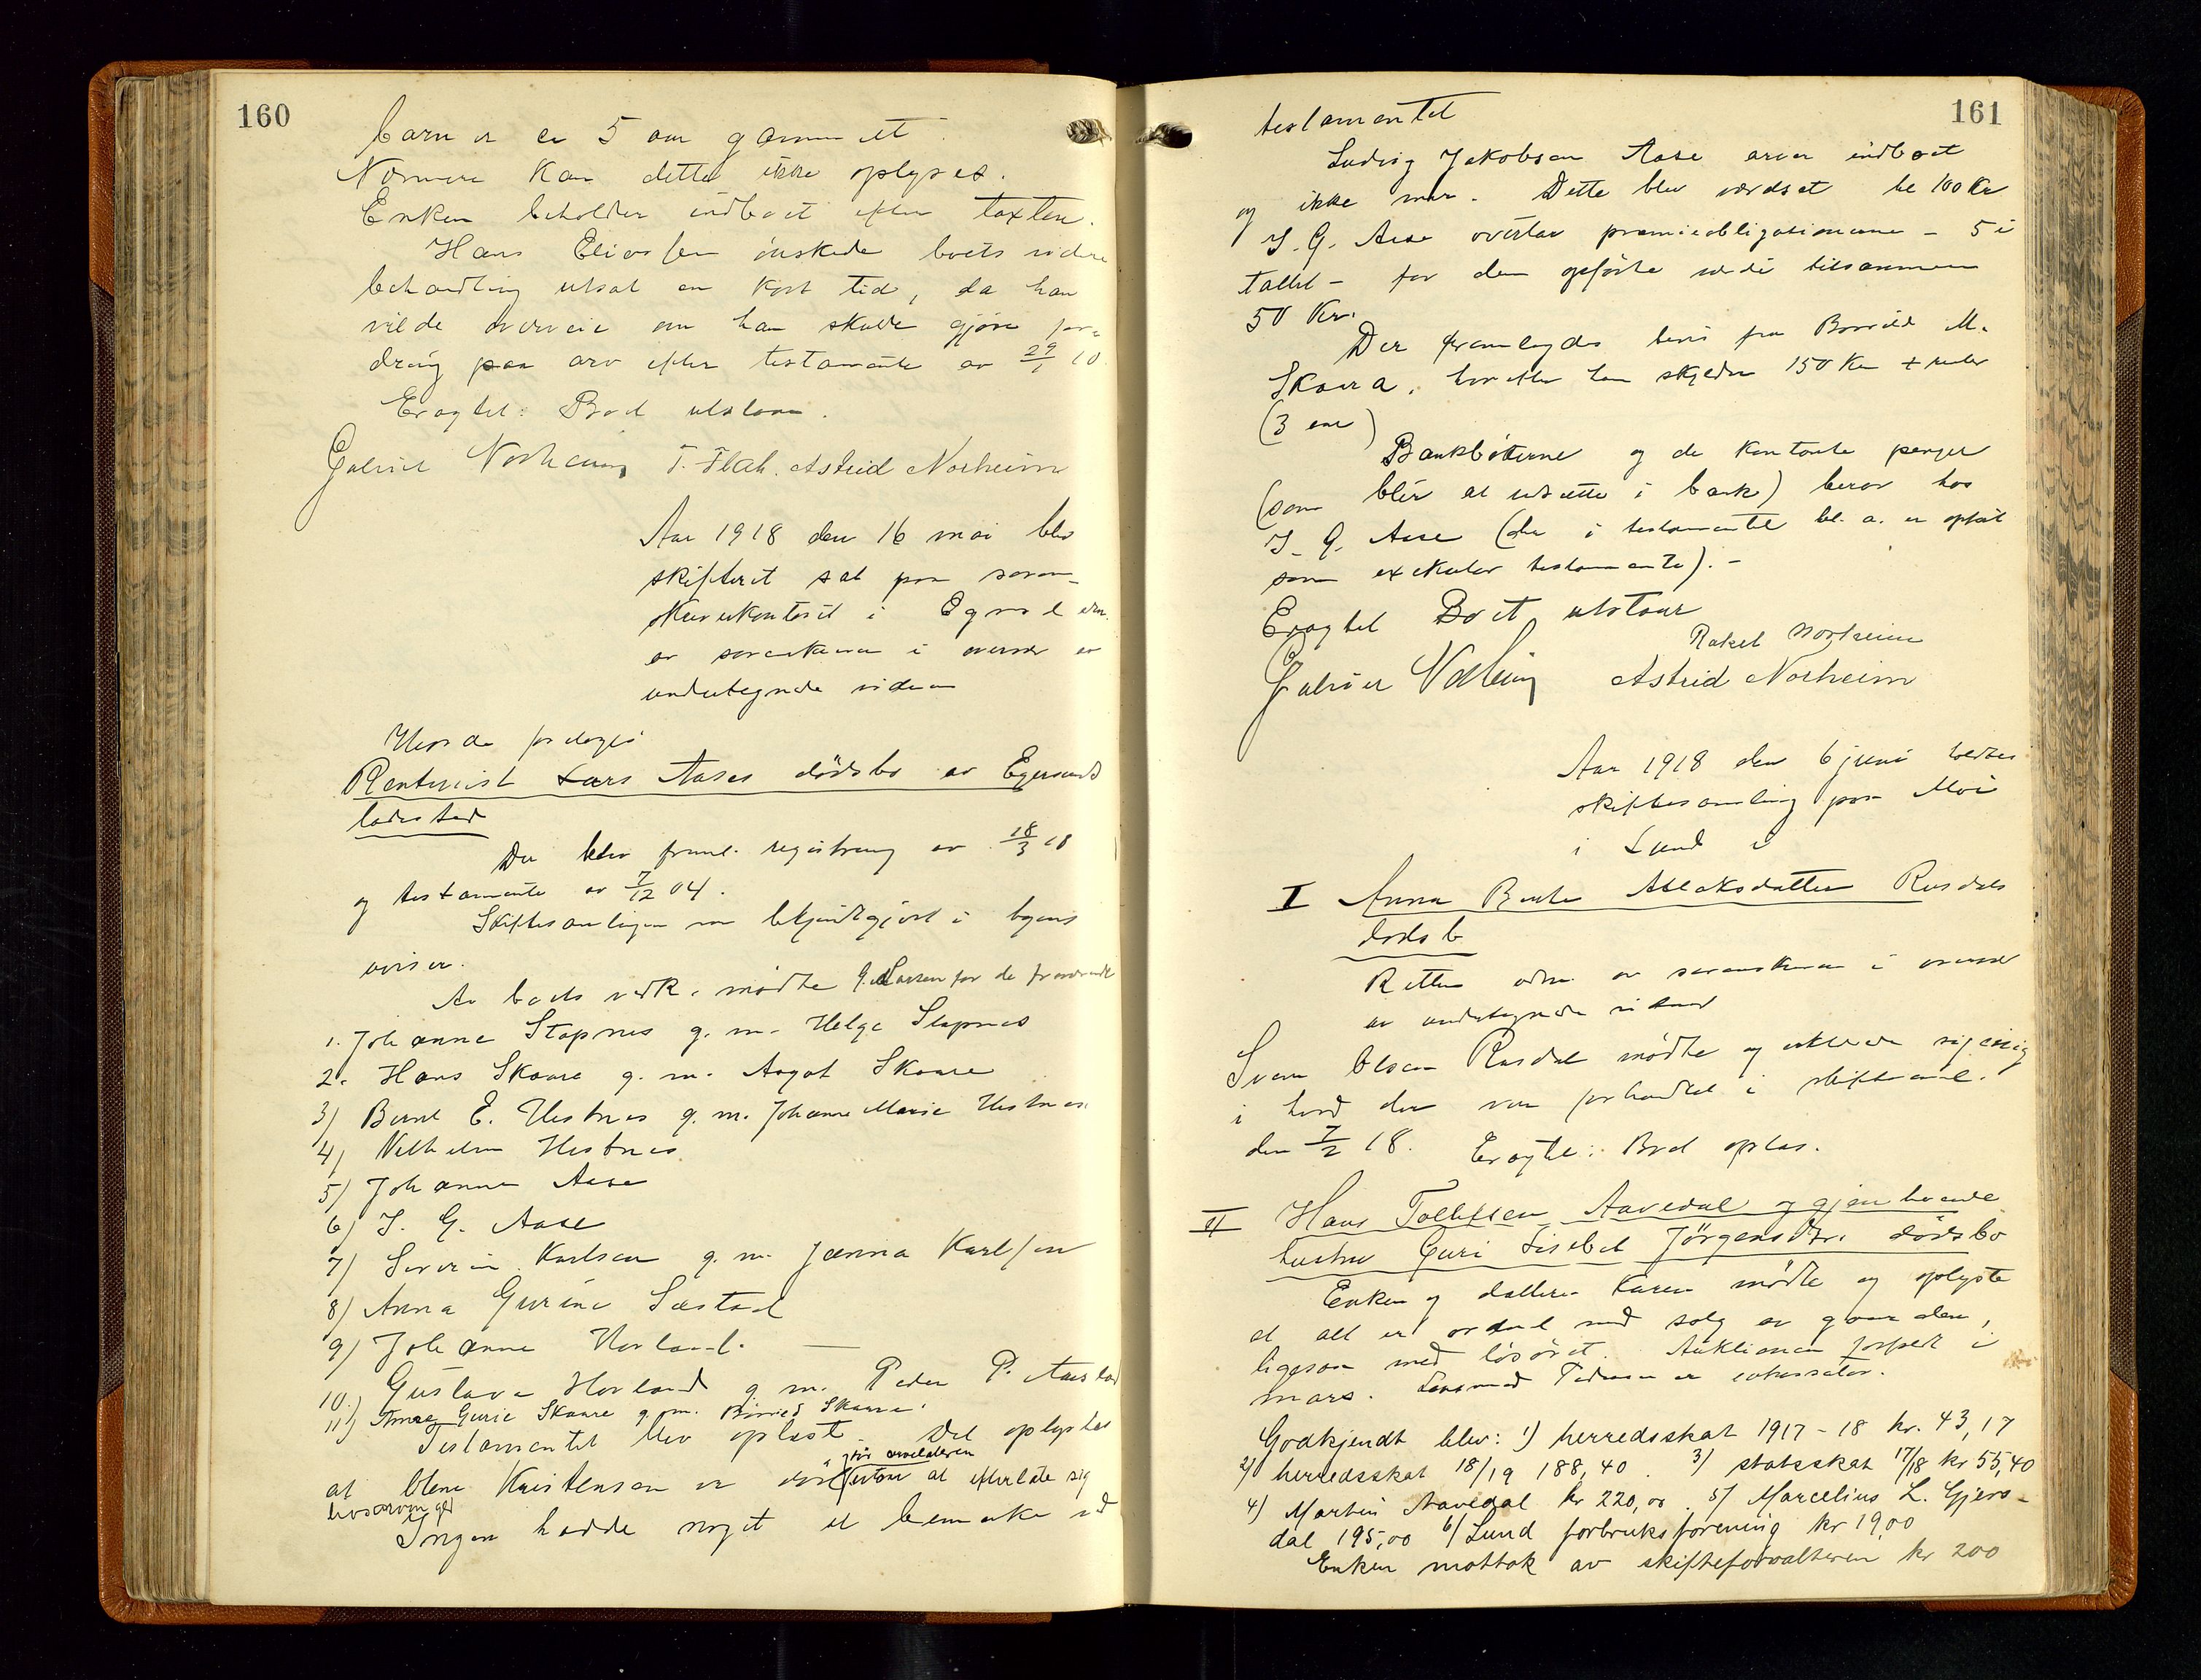 160
barn er ca 5 aar gammelt.
Nærmere kan dette ikke oplyses.
Enken beholder indboet efter taxten.
Hans Eliassen ønskede boets videre
behandling utsat en kort tid, da han
vilde overveie om han skulde gjøre for-
dring paa arv efter testamente av 29/1 10
Eragtet: Boet utstaar.
Gabriel Norheim T. Flah. Astrid Norheim
Aar 1918 den 16 mai blev
skifteret sat paa soren-
skriverkontoret i Egersund
av sorenskriveren i overvær av
undertegnede vidner
Hvorda foretoges
Rentenist Lars Aases dødsbo av Egersund
ladested
Der blev freml. registrering av 18/3 18
og testamente av 7/12 04.
Skiftesamlingen var bekjendtgjort i byens
aviser.
Av boets vedk. mødte G. Larsen for de fraværende
1. Johanne Stapnes g. m. Helge Stapnes
2. Hans Skaare g. m. Aagot Skaare
3) Bernt E. Hestnes g. m. Johanne Marie Hestnes
4) Vilhelm Hestnes
5) Johanne Aase
6) J. G. Aase
7) Severin Karlsen g. m. Janna Karlsen
8) Anna Gurine Sæstad
9) Johanne Hovland.
10) Gustava Hovland g. m. Peder P. Aarstad
11) Anne Gurie Skaare g. m. Skaare.
Testamentet blev oplæst. Det oplystes
før arveladeren
at Olene Kristensen er død uten at efterlate sig
livsarvinger
Ingen hadde noget at bemerke ved
161
testamentet
Ludvig Jakobsen Aase arver indboet
og ikke mer. Dette blev værdsat til 100 Kr
J. G. Aase overtar præmieobligationerne – 5 i
tallet – for den opførte værdi tilsammen
50 Kr.
Der fremlagdes brev fra M.
Skaara, hvorefter han skylder 150 Kr + renter
(3 aar)
Bankbøkerne og de kontante penger
(som blir at indsætte i bank) beror hos
J. G. Aase (der i testamentet bl. a. er opsat
som exekutor testamenti). –
Eragtet Boet utstaar
Rakel Norheim
Gabriel Norheim Astrid Norheim
Aar 1918 den 6 juni holdtes
skiftesamling paa Moi
i Lund i
I Anna Berte Aslaksdatter Rusdals
dødsb
Retten adm. av sorenskriveren i overvær
av undertegnede vidner
Sven Olsen Rusdal mødte og erklærte sig enig
i hvad der var forhandlet i skiftesaml.
den 7/2 18. Eragtet: Boet oplæs.
II Hans Tollefsen Aavedal og gjenlevende
hustru Guri Lisebet Jörgensdtr. dødsbo
Enken og datteren Karen mødte og oplyste
at alt er ordnet med salg av gaarden,
ligesaa med løsøret. Auktionen foregik i
mars. Lensmand Pedersen er inkassator.
Godkjendt blev: 1) herredsskat 1917 – 18 kr. 43,17
2) herredsskat 18/19 188,40. 3) statsskat 17/18 kr 55,40
4) Martin Aavedal kr 220,00. 5) Marcelius L. Gjers-
dal 195,00 6) Lund forbruksforening kr 19,00
Enken mottok av skifteforvalteren kr 200